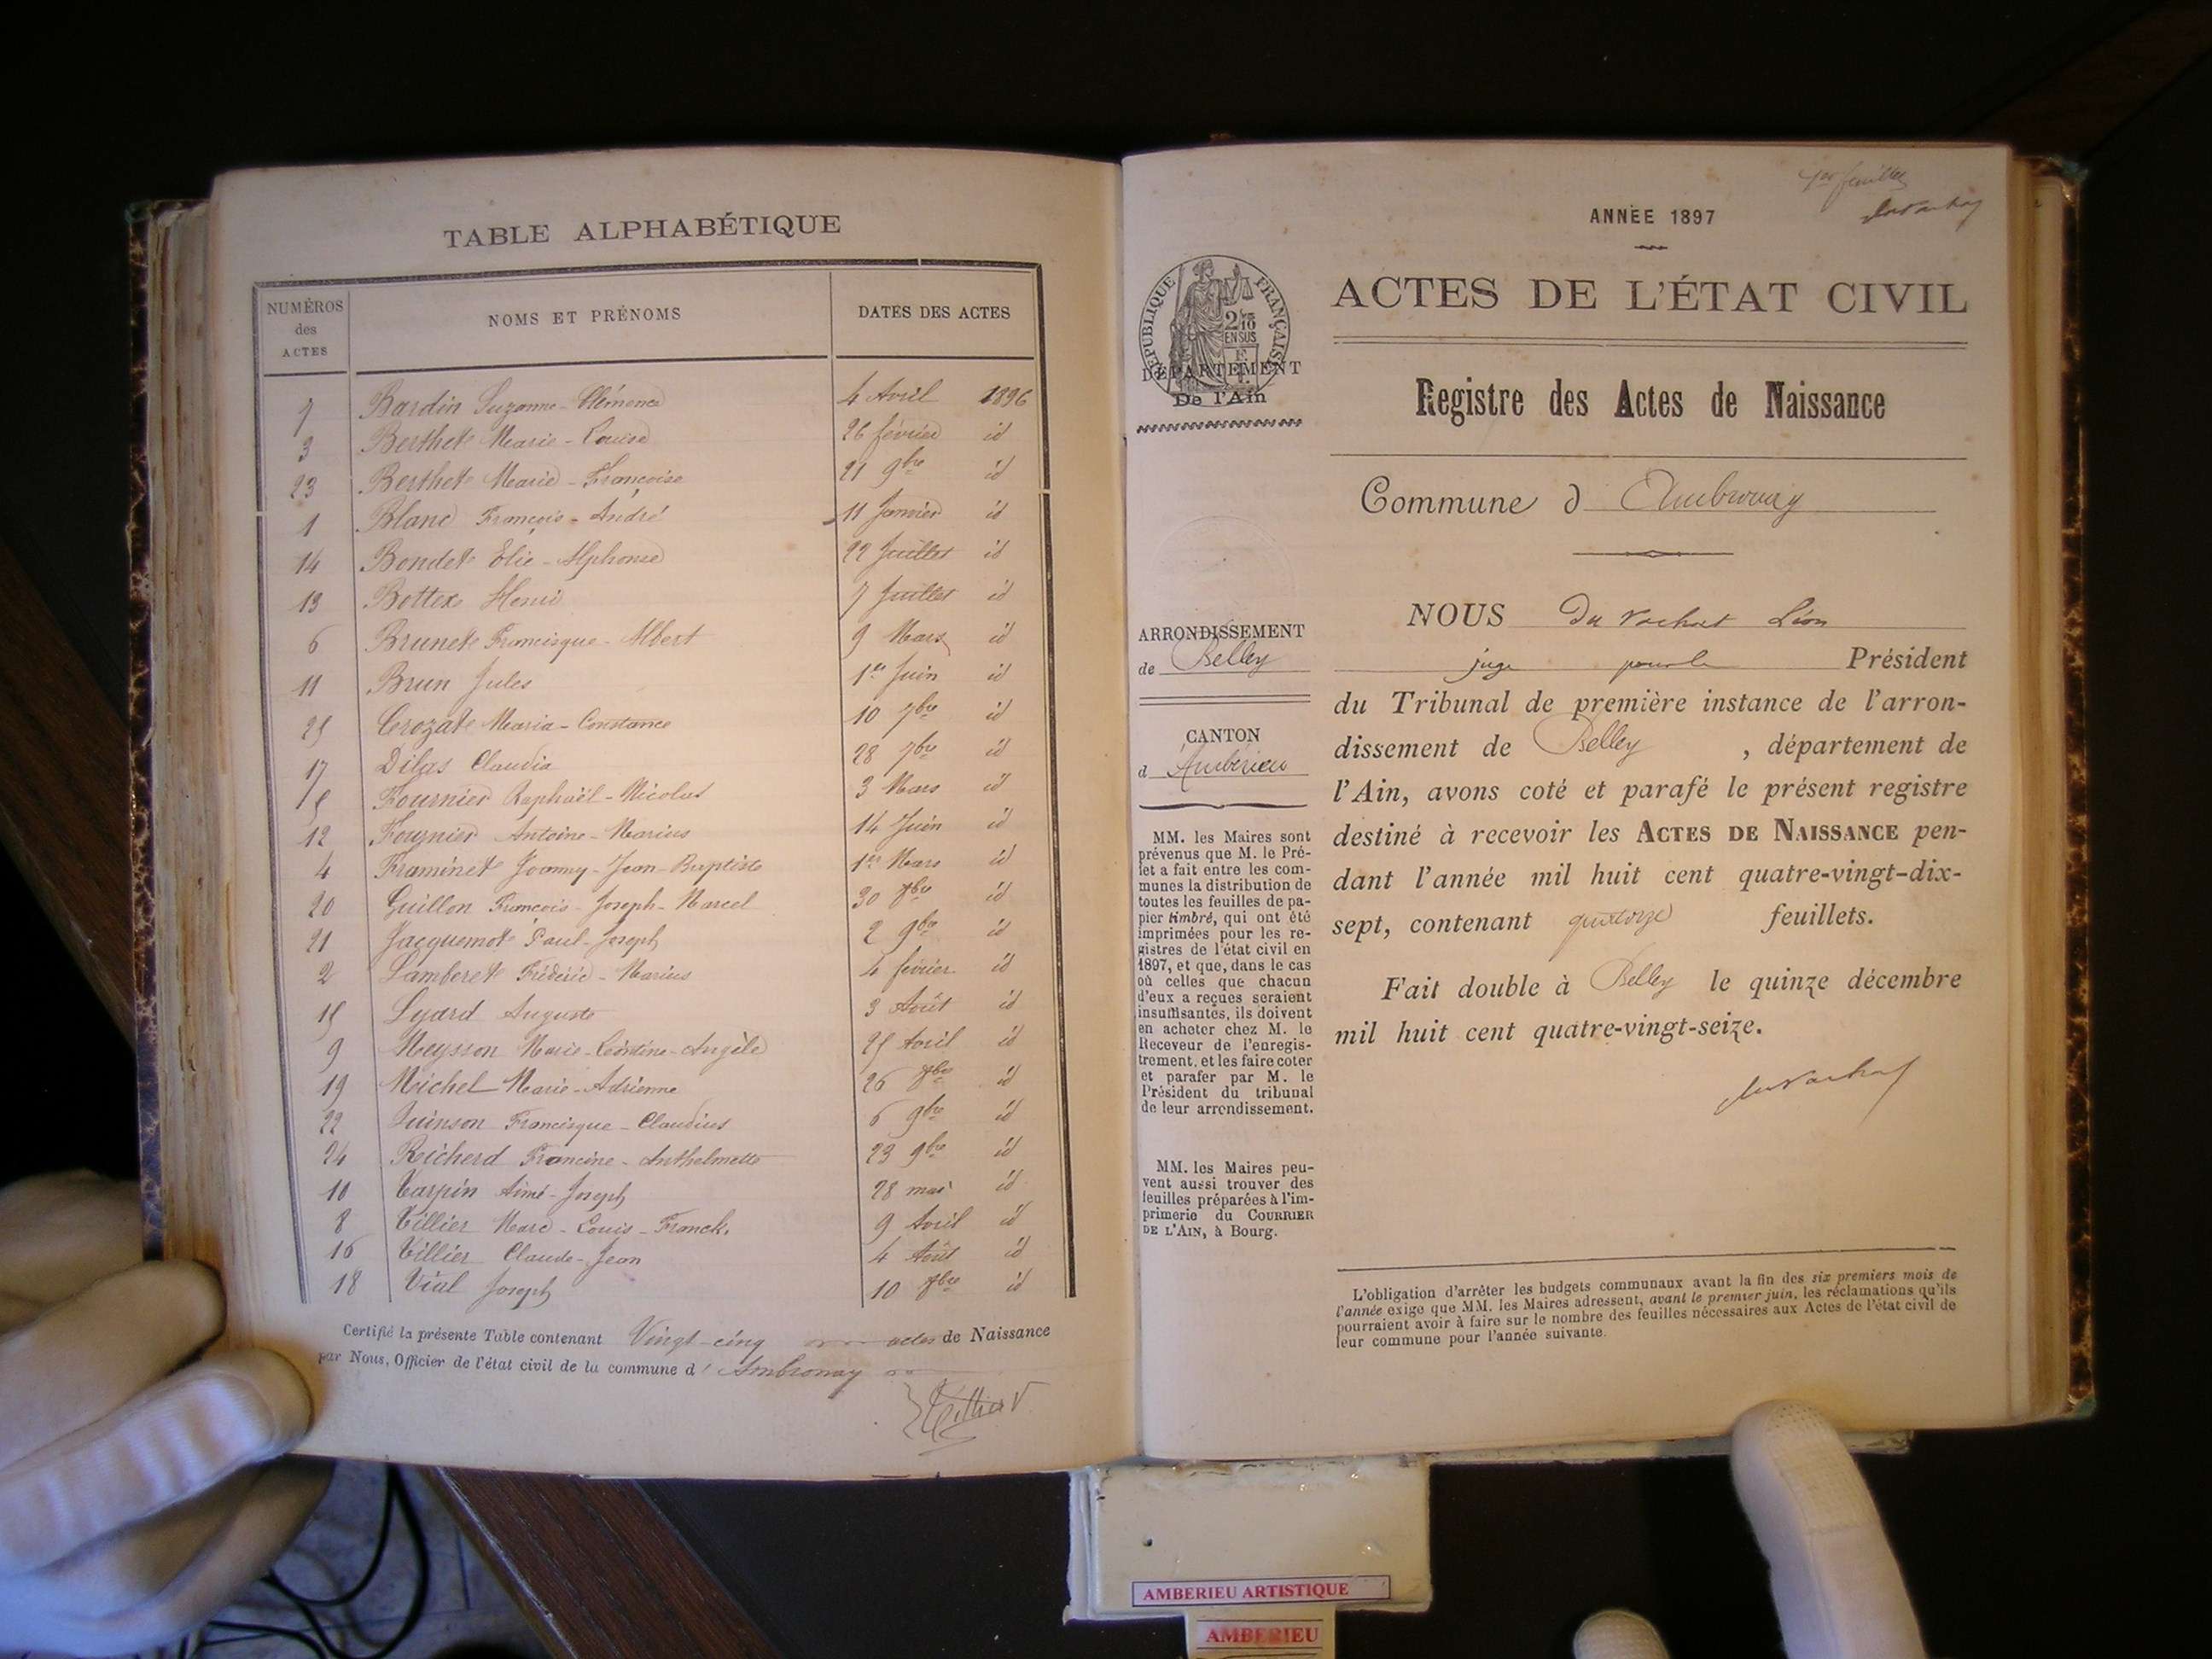 TABLE ALPHABÉTIQUE
NUMÉROS des ACTES NOMS ET PRÉNOMS DATES DES ACTES
7 Bardin Suzanne-Clémence 4 Avril 1896
3 Berthet Marie-Louise 26 février id
23 Berthet Marie-Françoise 21 9bre id
1 Blanc François-André 11 Janvier id
14 Bondet Elie-Alphonse 22 Juillet id
13 Bottex Henri 7 Juillet id
6 Brunet Francisque-Albert 9 Mars id
11 Brun Jules 1er Juin id
25 Crozat Maria-Constance 10 id
17 Dilas Claudia 28 7bre id
5 Fournier Raphaël-Nicolas 3 Mars id
12 Fournier Antoine-Marius 14 Juin id
4 Framinet Joanny-Jean-Baptiste 1er Mars id
20 Guillon François-Joseph-Marcel 30 8bre id
21 Jacquemot Paul-Joseph 2 9bre id
2 Lamberet Frédéric-Marius 4 février id
15 Lyard Auguste 3 Août id
9 Meysson Marie-Léontine-Angèle 25 Avril id
19 Michel Marie-Adrienne 26 8bre id
22 Juinson Francisque-Claudius 6 9bre id
24 Richerd Francine-Anthelmette 23 9bre id
10 Tarpin Aimé-Joseph 28 mai id
8 Tillier Marc-Louis-Franck. 9 Avril id
16 Tillier Claude-Jean 4 Août id
18 Vial Joseph 10 8bre id
Certifié la présente Table contenant Vingt-cinq actes de Naissance
par Nous, Officier de l'état civil de la commune d' Ambronay
Tillier
1er feuillet
ANNÉE 1897
ACTES DE L'ÉTAT CIVIL
RÉPUBLIQUE FRANÇAISE
DÉPARTEMENT
De l'Ain
Registre des Actes de Naissance
Commune d Ambronay
ARRONDISSEMENT
de Belley
CANTON
d Ambérieu
MM. les Maires sont
prévenus que M. le Pré-
fet a fait entre les com-
munes la distribution de
toutes les feuilles de pa-
pier timbré, qui ont été
imprimées pour les re-
gistres de l'état civil en
1897, et que, dans le cas
où celles que chacun
d'eux a reçues seraient
insuffisantes, ils doivent
en acheter chez M. le
Receveur de l'enregis-
trement, et les faire coter
et parafer par M. le
Président du tribunal
de leur arrondissement.
MM. les Maires peu-
vent aussi trouver des
feuilles préparées à l'im-
primerie du COURRIER
DE L'AIN, à Bourg.
NOUS Du Vachat Léon
juge pour le Président
du Tribunal de première instance de l'arron-
dissement de Belley, département de
l'Ain, avons coté et parafé le présent registre
destiné à recevoir les ACTES DE NAISSANCE pen-
dant l'année mil huit cent quatre-vingt-dix-
sept, contenant quatorze feuillets.
Fait double à Belley le quinze décembre
mil huit cent quatre-vingt-seize.
du Vachat
L'obligation d'arrêter les budgets communaux avant la fin des six premiers mois de
l'année exige que MM. les Maires adressent, avant le premier juin, les réclamations qu'ils
pourraient avoir à faire sur le nombre des feuilles nécessaires aux Actes de l'état civil de
leur commune pour l'année suivante.
AMBERIEU ARTISTIQUE
AMBERIEU